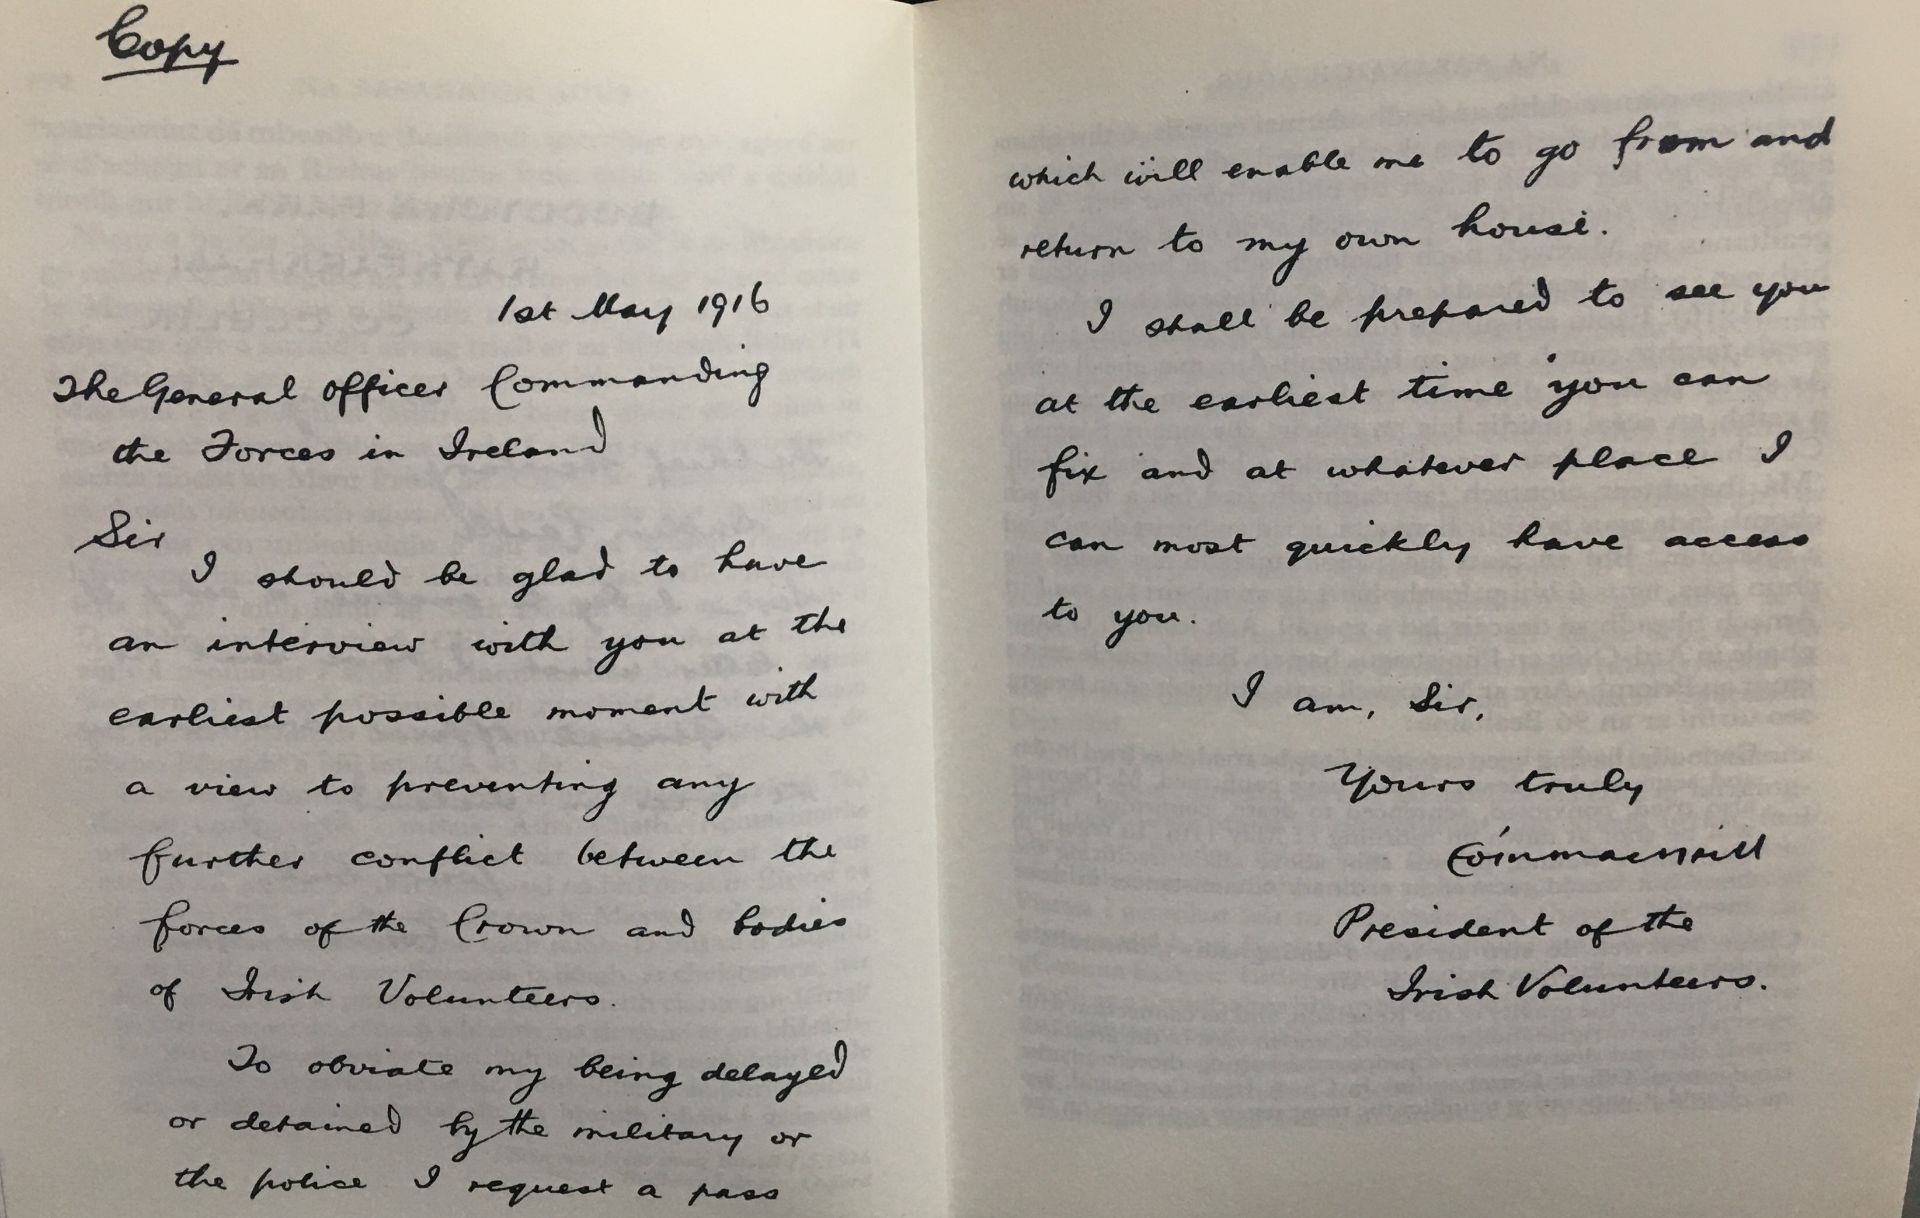 Copy
1st May 1916
The General Officer Commanding
the Forces in Ireland
Sir
I should be glad to have
an interview with you at the
earliest possible moment with
a view to preventing any
further conflict between the
forces of the Crown and bodies
of Irish Volunteers.
To obviate my being delayed
or detained by the military or
the police I request a pass
which will enable me to go from and
return to my own house.
I shall be prepared to see you
at the earliest time you can
fix and at whatever place I
can most quickly have access
to you.
I am, Sir,
Yours truly
Eóin MacNeill
President of the
Irish Volunteers.